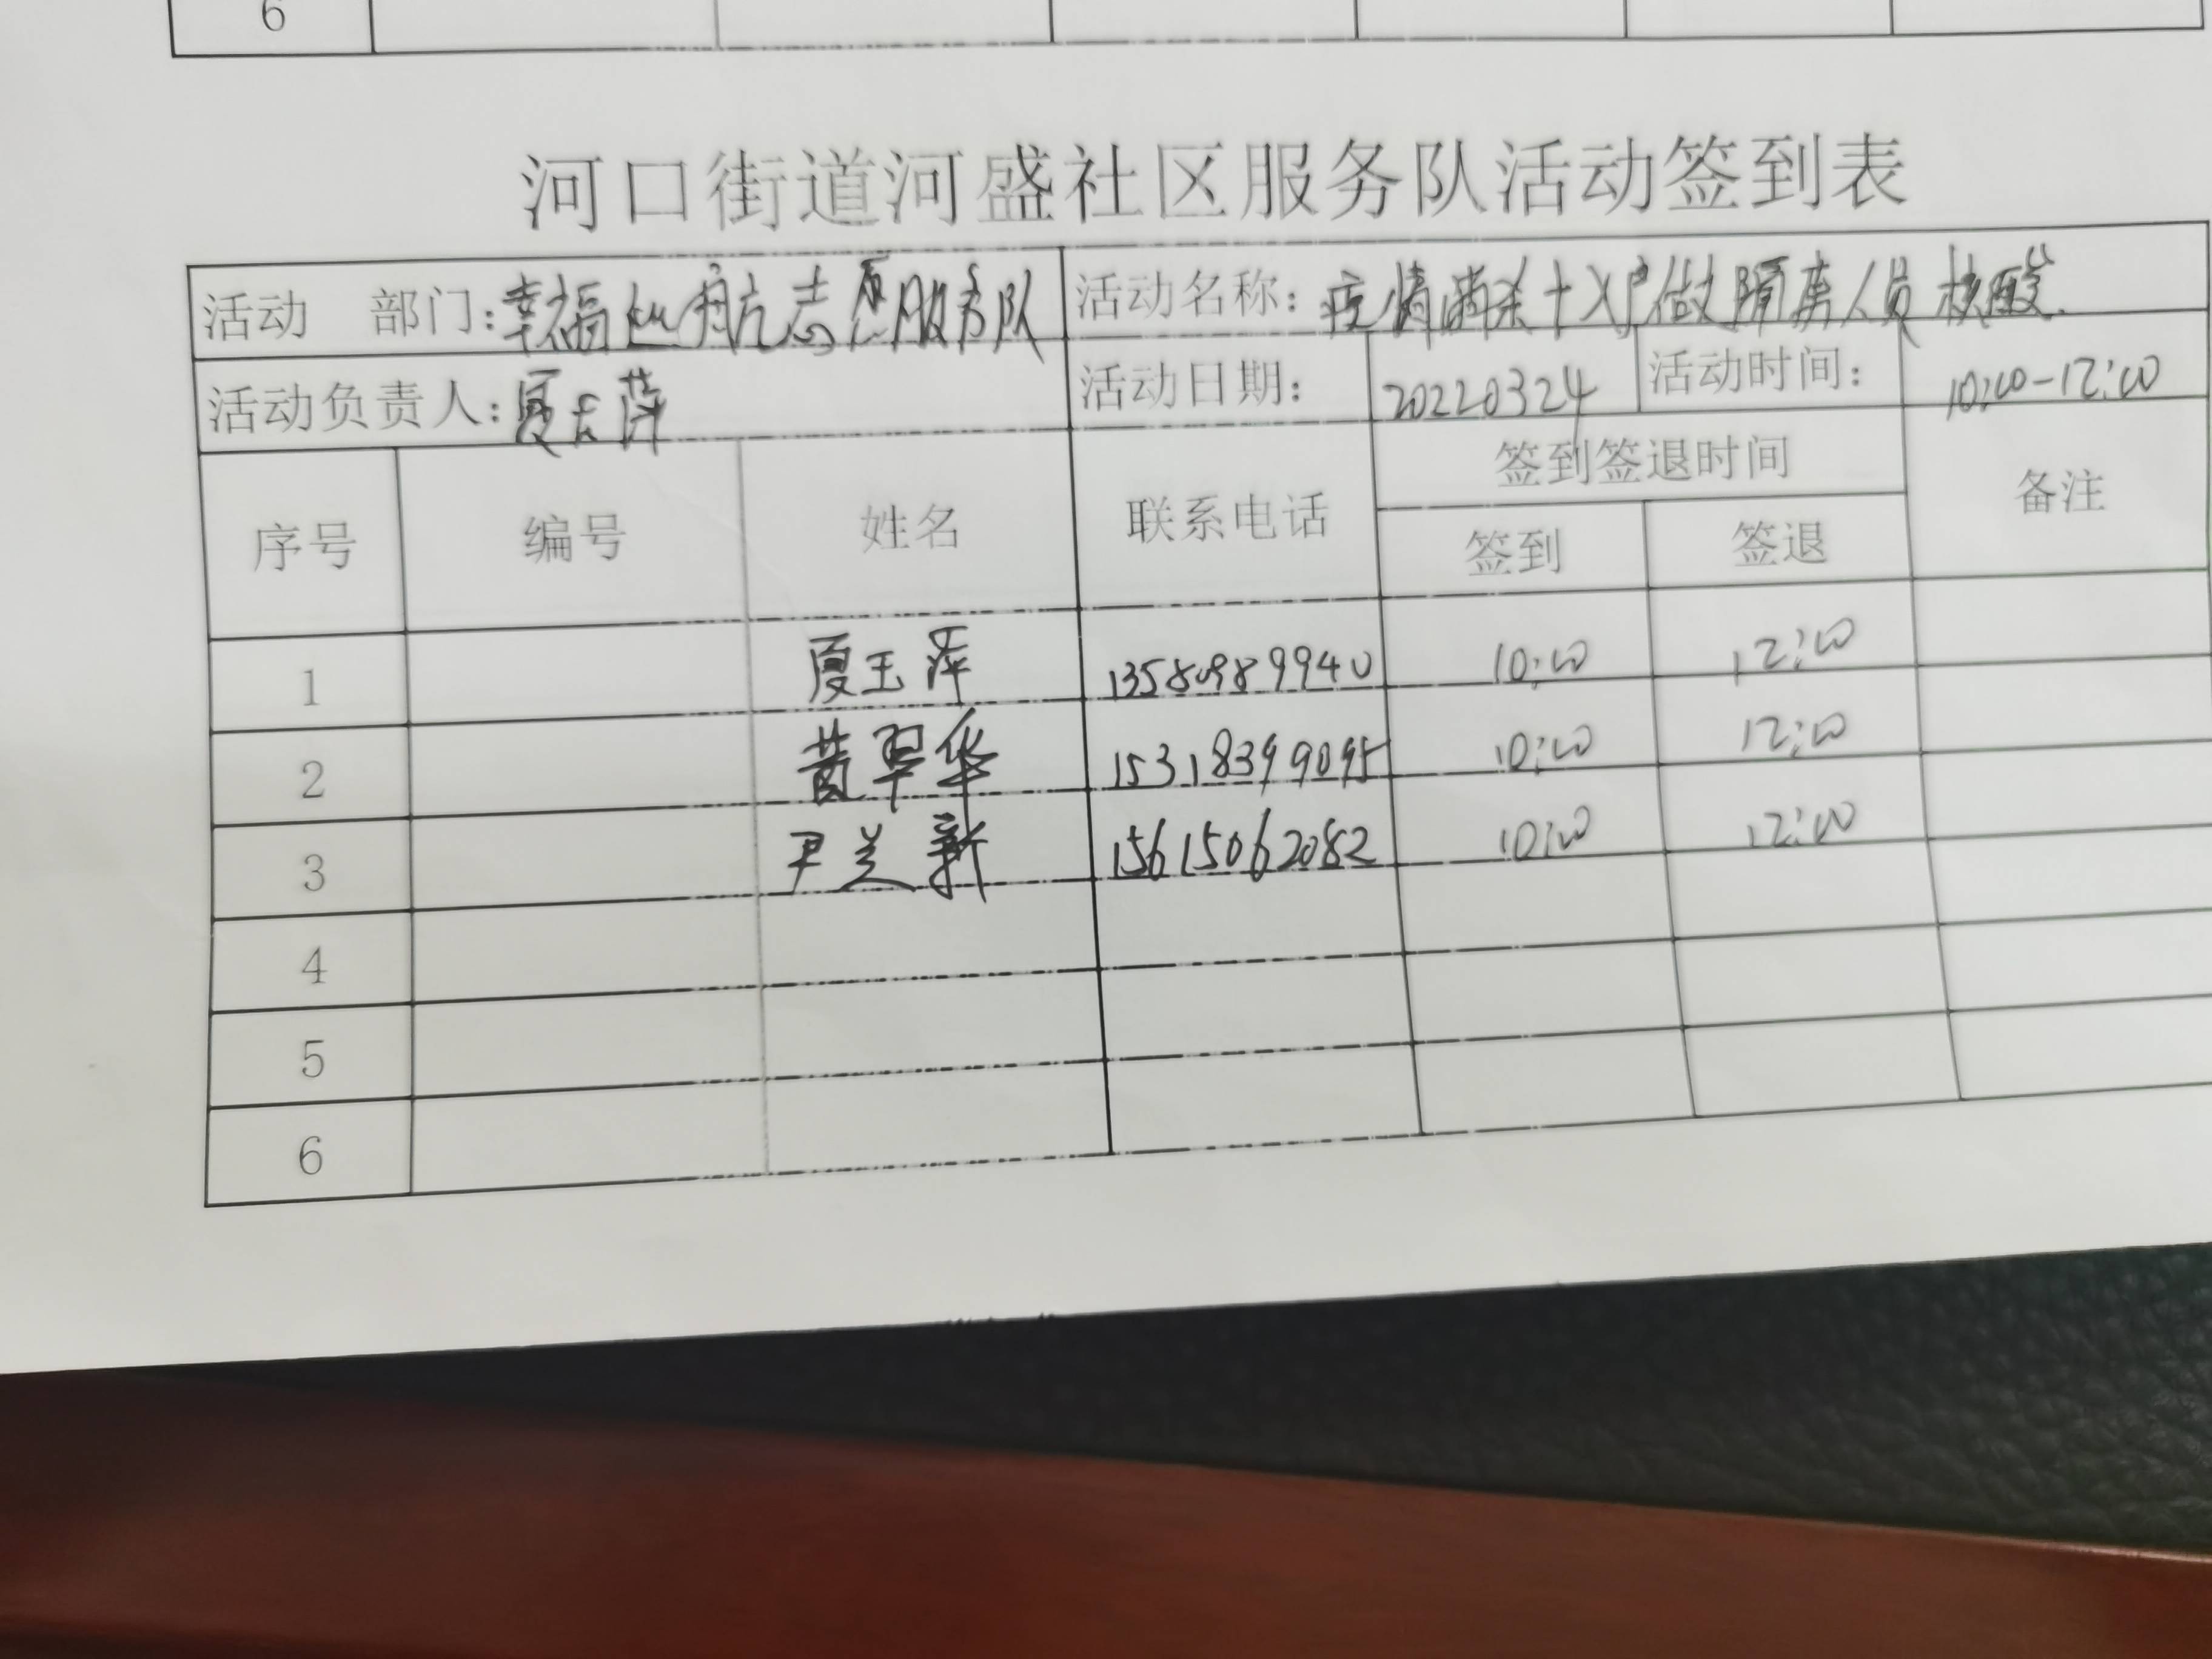 6
河口街道河盛社区服务队活动签到表
活动 部门:幸福起航志愿服务队 活动名称:疫情消杀+入户做隔离人员核酸.
活动负责人:夏玉萍 活动日期: 20220324 活动时间: 10:00-12:00
序号 编号 姓名 联系电话 签到签退时间 备注
签到 签退
1 夏玉萍 13589989940 10:00 12:00
2 黄翠华 15318399095 10:00 12:00
3 尹兰新 15615062082 10:00 12:00
4
5
6